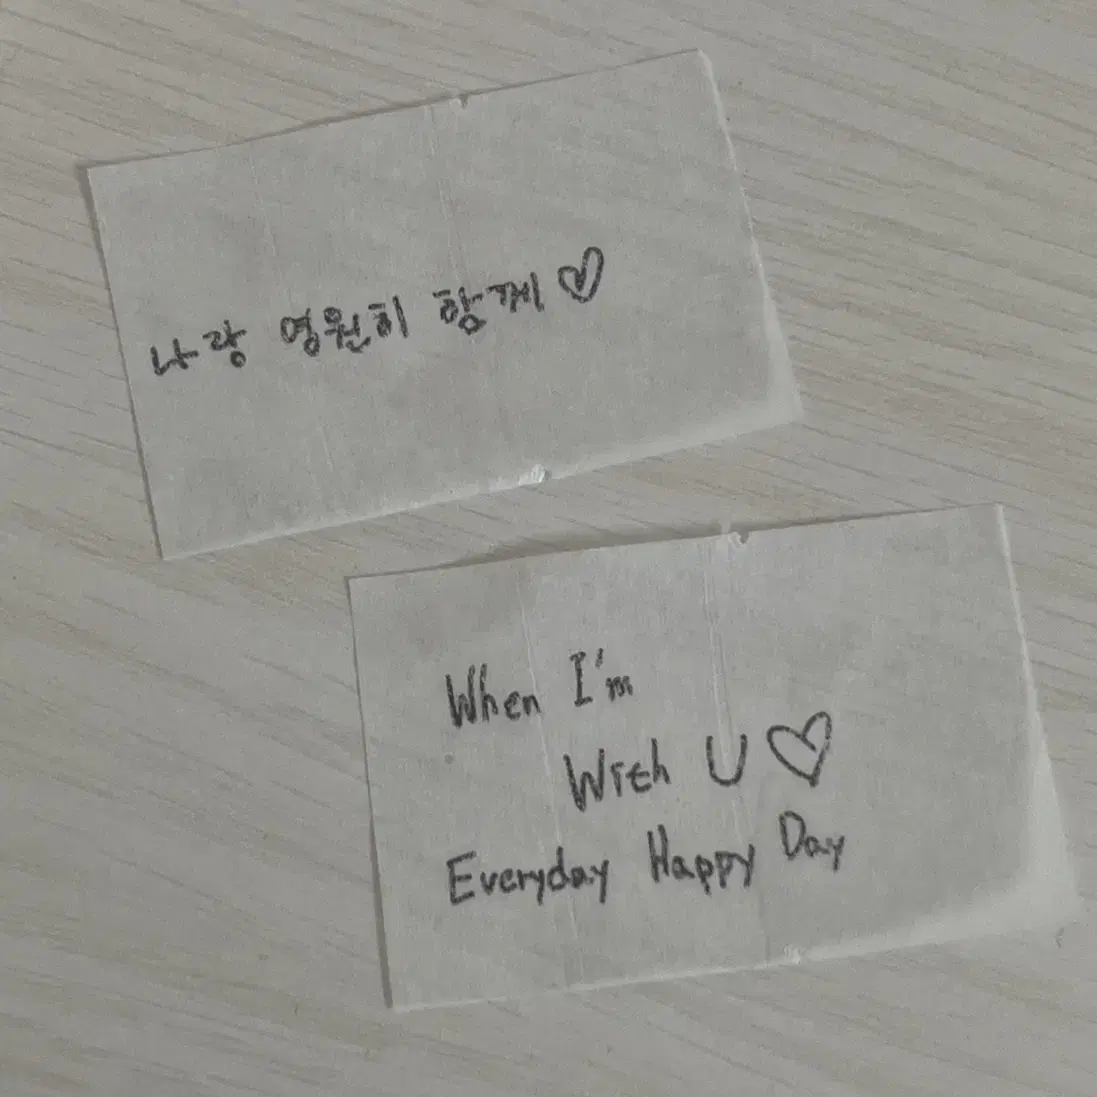 나랑 영원히 함께 ♡
When I'm
With U ♡
Everyday Happy Day